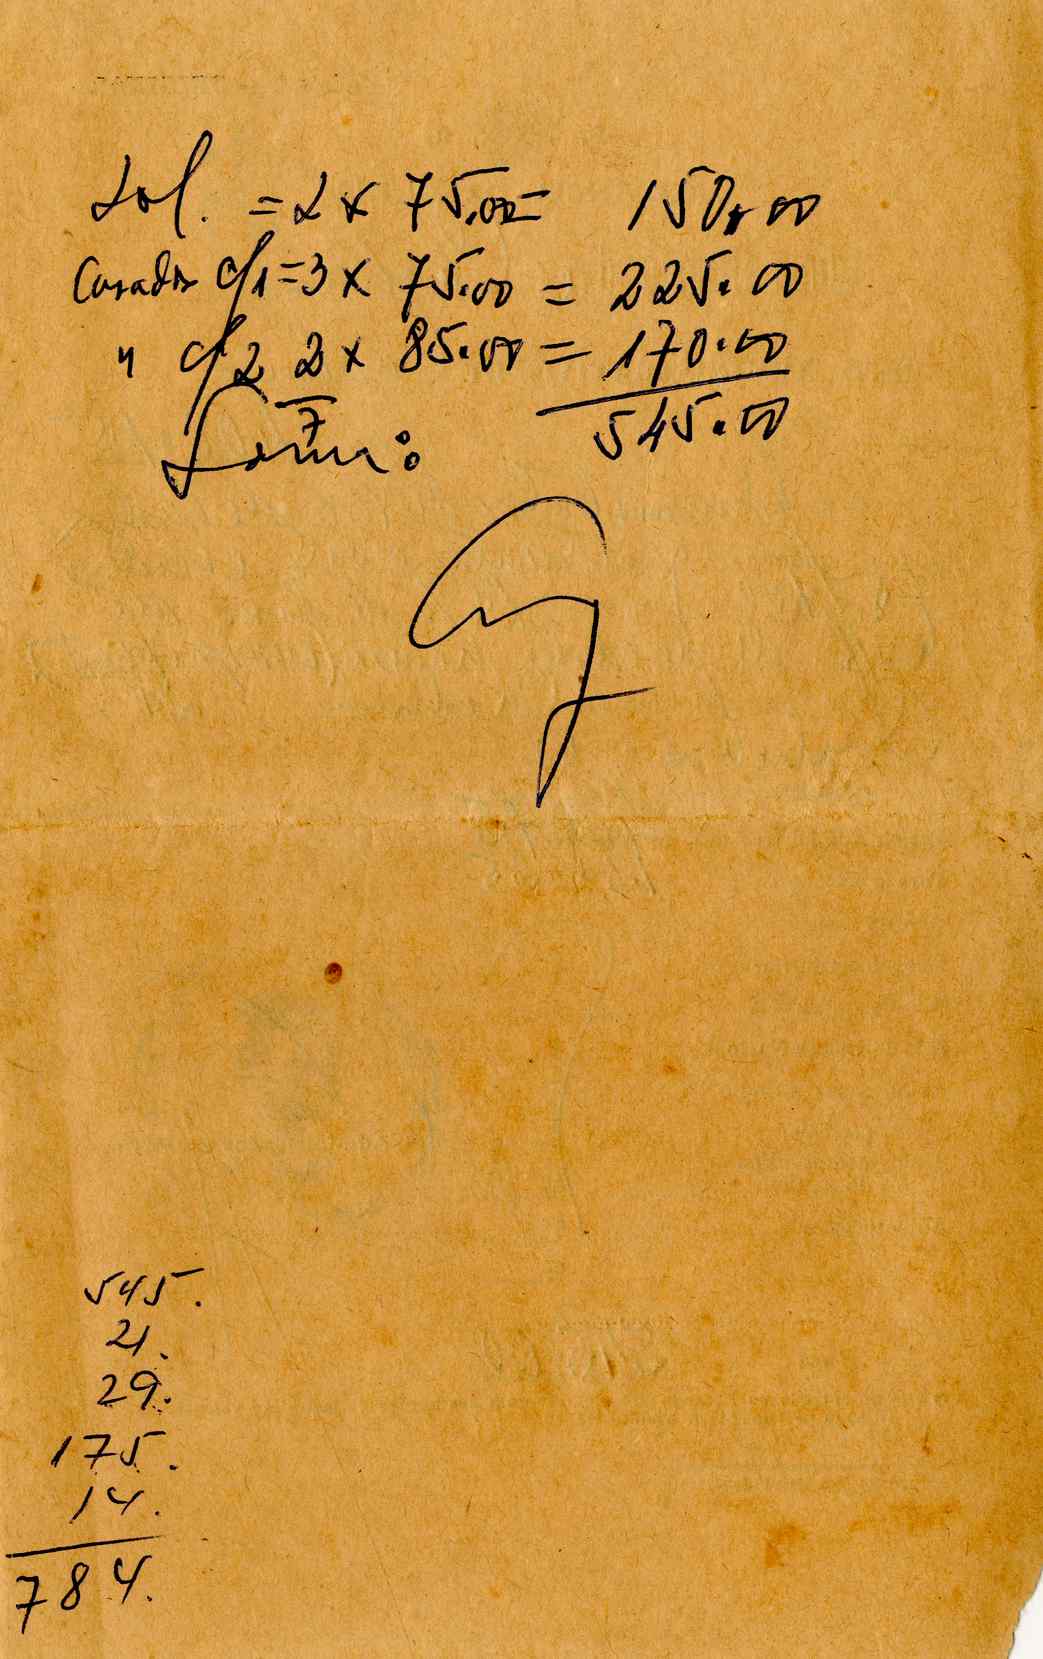 Sol. = 2 x 75.00 = 150,00
Casados c/1 = 3 x 75.00 = 225.00
" c/2 2 x 85.00 = 170.00
7 545.00
Soma:
545.
21.
29.
175.
14.
784.